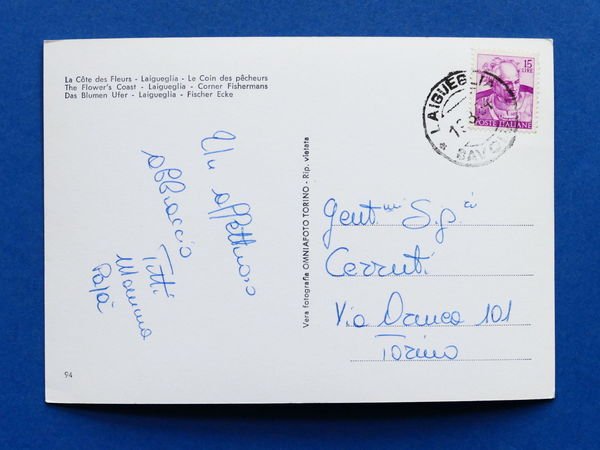 La Côte des Fleurs - Laigueglia - Le Coin des pêcheurs
The Flower's Coast - Laigueglia - Corner Fishermans
Das Blumen Ufer - Laigueglia - Fischer Ecke
15
LIRE
POSTE ITALIANE
* LAIGUEGLIA
SAVONA
Un affettuoso
abbraccio
Titti
Mamma
Papà
Vera fotografia OMNIAFOTO TORINO - Rip. vietata
Gent.mi S.g.ri
Cerruti
Via 101
Torino
94